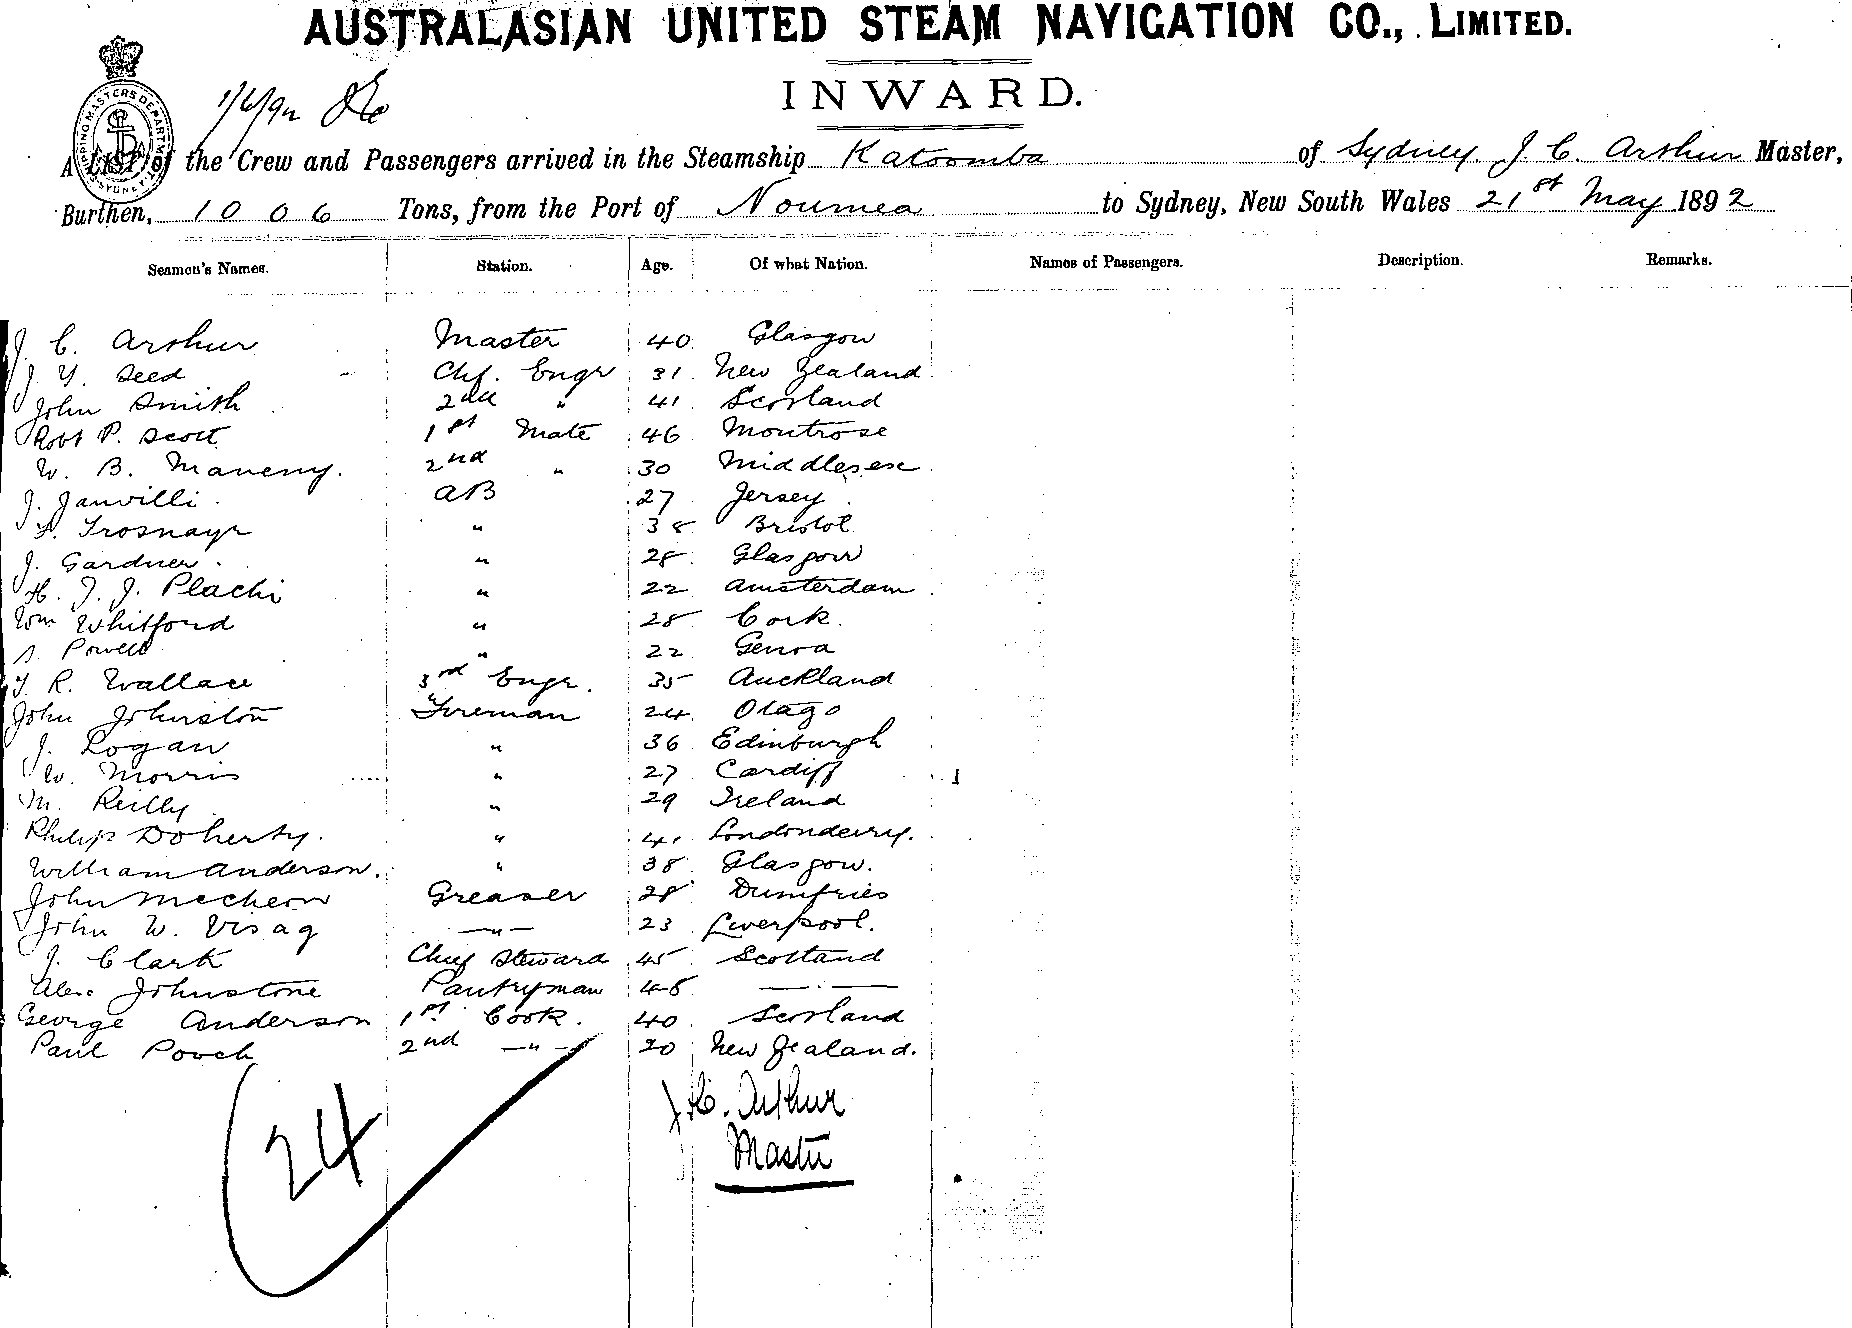 AUSTRALASIAN UNITED STEAM NAVIGATION CO., LIMITED.
INWARD.
1/6/92
SHIPPING MASTERS DEPARTMENT SYDNEY
A LIST of the Crew and Passengers arrived in the Steamship Katoomba of Sydney J C. Arthur Master,
Burthen, 1006 Tons, from the Port of Noumea to Sydney, New South Wales 21st May 1892
Seamen's Names. Station. Age. Of what Nation. Names of Passengers. Description. Remarks.
J. C. Arthur Master 40 Glasgow
J. Y. Seed Chf. Engr 31 New Zealand
John Smith 2nd " 41 Scotland
Robt P. Scott 1st Mate 46 Montrose
W. B. 2nd " 30 Middlesex
J. Janvilli AB 27 Jersey
" 38 Bristol
J. Gardner " 28 Glasgow
H. J. J. Plachi " 22 Amsterdam
Wm Whitford " 28 Cork.
Powell " 22 Genoa
R. Wallace 3rd Engr. 35 Auckland
John Johnston Fireman 24 Otago
J. Logan " 36 Edinburgh
W. Morris " 27 Cardiff
M. Reilly " 29 Ireland
Philip Doherty. " 41 Londonderry.
William Anderson. " 38 Glasgow.
John Greaser 28 Dumfries
John W. Visag " 23 Liverpool.
J. Clark Chief Steward 45 Scotland
Alex. Johnstone Pantryman 48
George Anderson 1st Cook. 40 Scotland
Paul Pooch 2nd " 20 New Zealand.
24
J. C. Arthur
Master